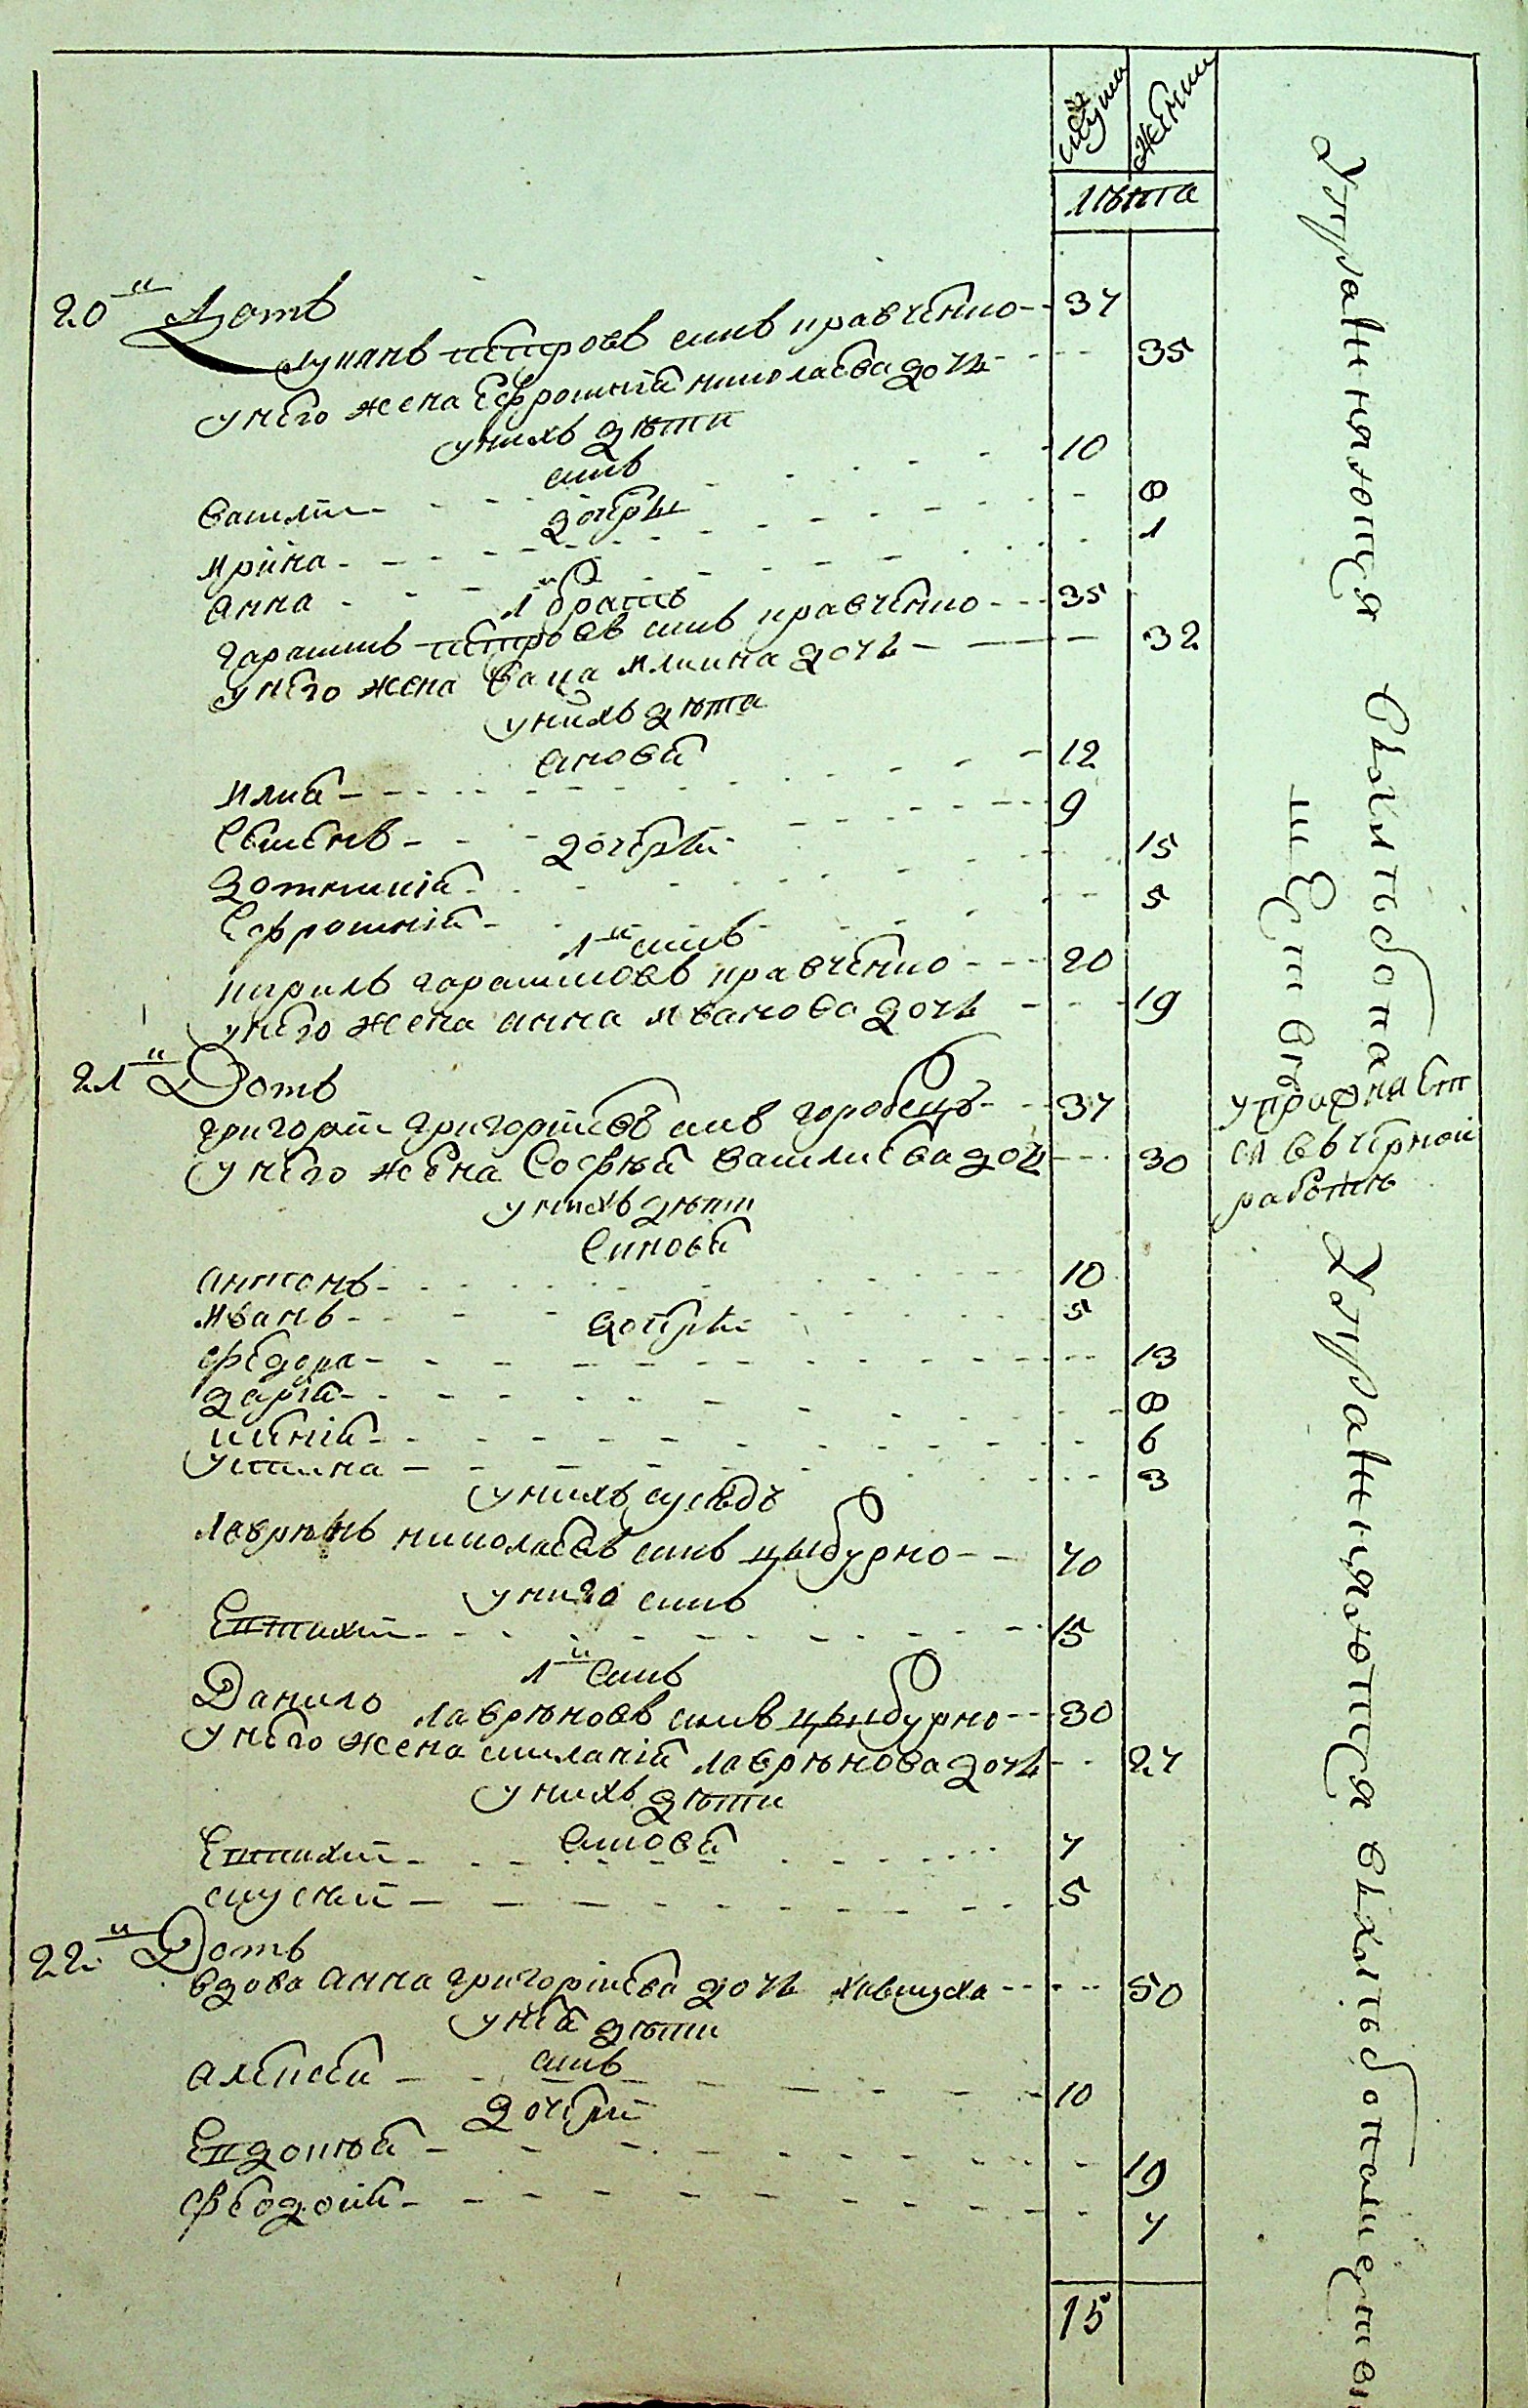 мужш женш
лѣта
20и Домъ
Лукянъ петровъ синъ кравченко 37
унего жена Ефросинїя николаева дочь 35
унихъ дѣти
синъ
василїи 10
дочери
ирина 8
анна 1
1й братъ
гарасимъ петровъ синъ кравченко 35
унего жена илиина дочь 32
унихъ дѣти
синовя
илия 12
Семенъ 9
дочери
домникїя 15
Ефросинїя 5
1й синъ
кирилъ гарасимовъ кравченко 20
унего жена анна иванова дочь 19
21й Домъ
григорїи григорїевъ синъ горобецъ 37
унего жена Софѣя василиева дочь 30
унихъ дѣти
Синовя
антонъ 10
иванъ 5
дочери
федора 13
дарїя 8
6
устина 3
унихъ сусѣдъ
Лаврѣнъ николаевъ синъ цыбурко 70
унего синъ
Евтихїи 15
1й Синъ
Данило лаврѣновъ синъ цыбурко 30
унего жена меланїя лаврѣнова дочь 27
унихъ дѣти
Синовя
Евтихїи 7
5
22й Домъ
вдова анна григорїева дочь 50
унея дѣти
синъ
алексеи 10
дочери
Евдокѣя 19
феодосїя 7
15
Упражняются
въхлѣбопашествѣ
упражняет
ся вчерной
работѣ
Упражняются въхлѣбопашествѣ